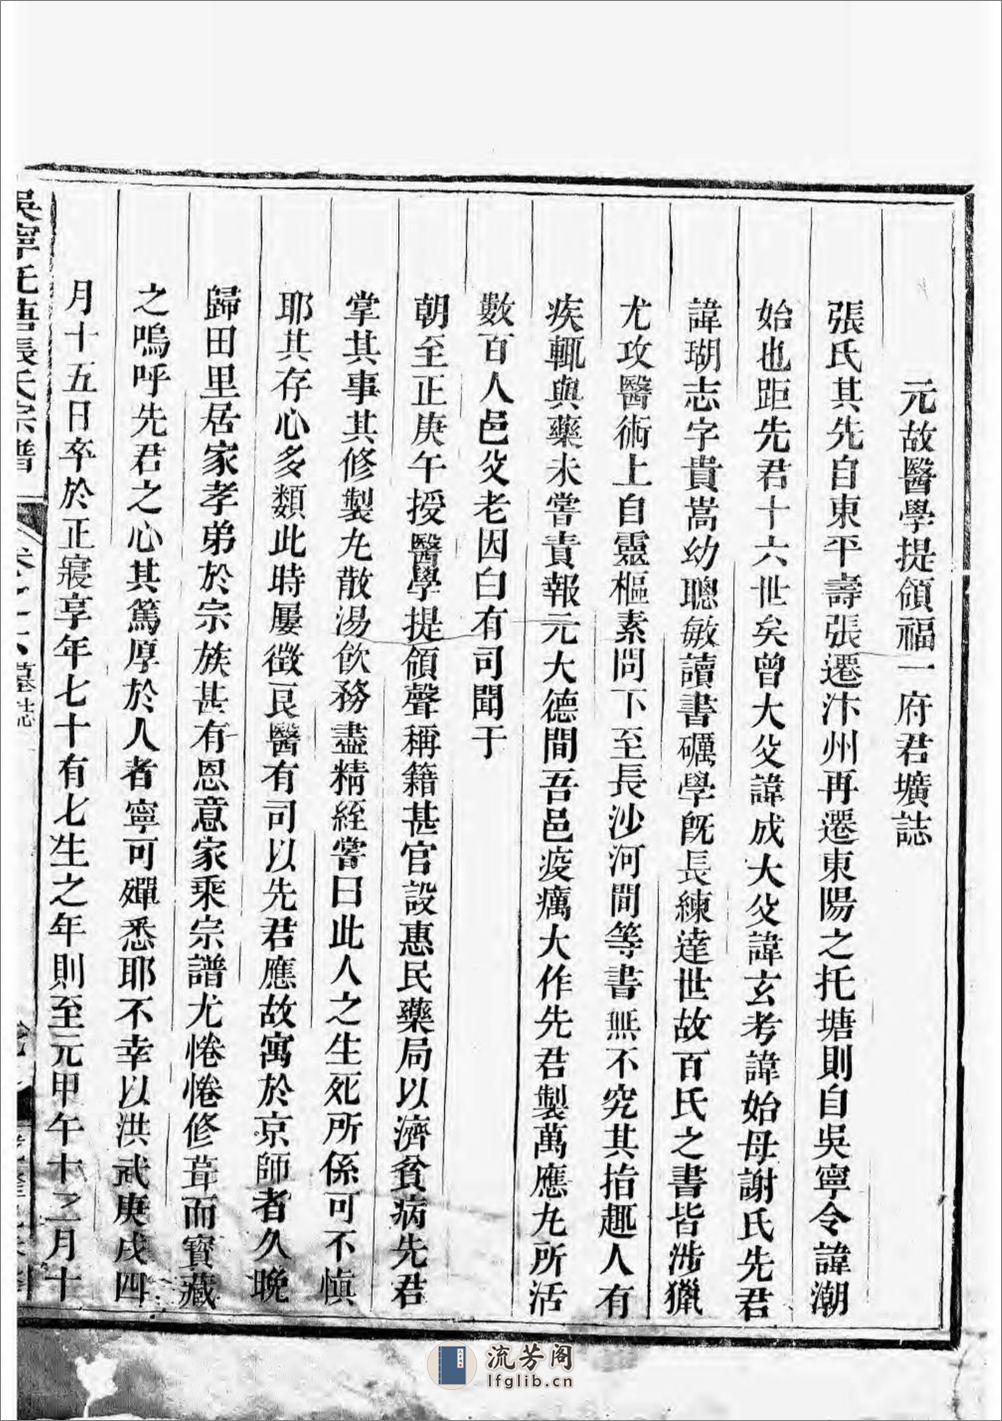 元故醫學提領福一府君壙誌
張氏其先自東平壽張遷汴州再遷東陽之托塘則自吳寧令諱潮
始也距先君十六世矣曾大父諱成大父諱玄考諱始母謝氏先君
諱瑚志字貴嵩幼聰敏讀書礪學旣長練達世故百氏之書皆涉獵
尤攻醫術上自靈樞素問下至長沙河間等書無不究其指趣人有
疾輒與藥未嘗責報元大德間吾邑疫癘大作先君製萬應丸所活
數百人邑父老因白有司聞于
朝至正庚午授醫學提領聲稱籍甚官設惠民藥局以濟貧病先君
掌其事其修製丸散湯飲務盡精絰嘗曰此人之生死所係可不慎
耶其存心多類此時屢徵良醫有司以先君應故寓於京師者久晚
歸田里居家孝弟於宗族甚有恩意家乘宗譜尤惓惓修葺而寶藏
之嗚呼先君之心其篤厚於人者寧可殫悉耶不幸以洪武庚戌四
月十五日卒於正寢享年七十有七生之年則至元甲午十之月十
吳寧托塘張氏宗譜
卷之十六墓誌
流芳阁
lfglib.cn